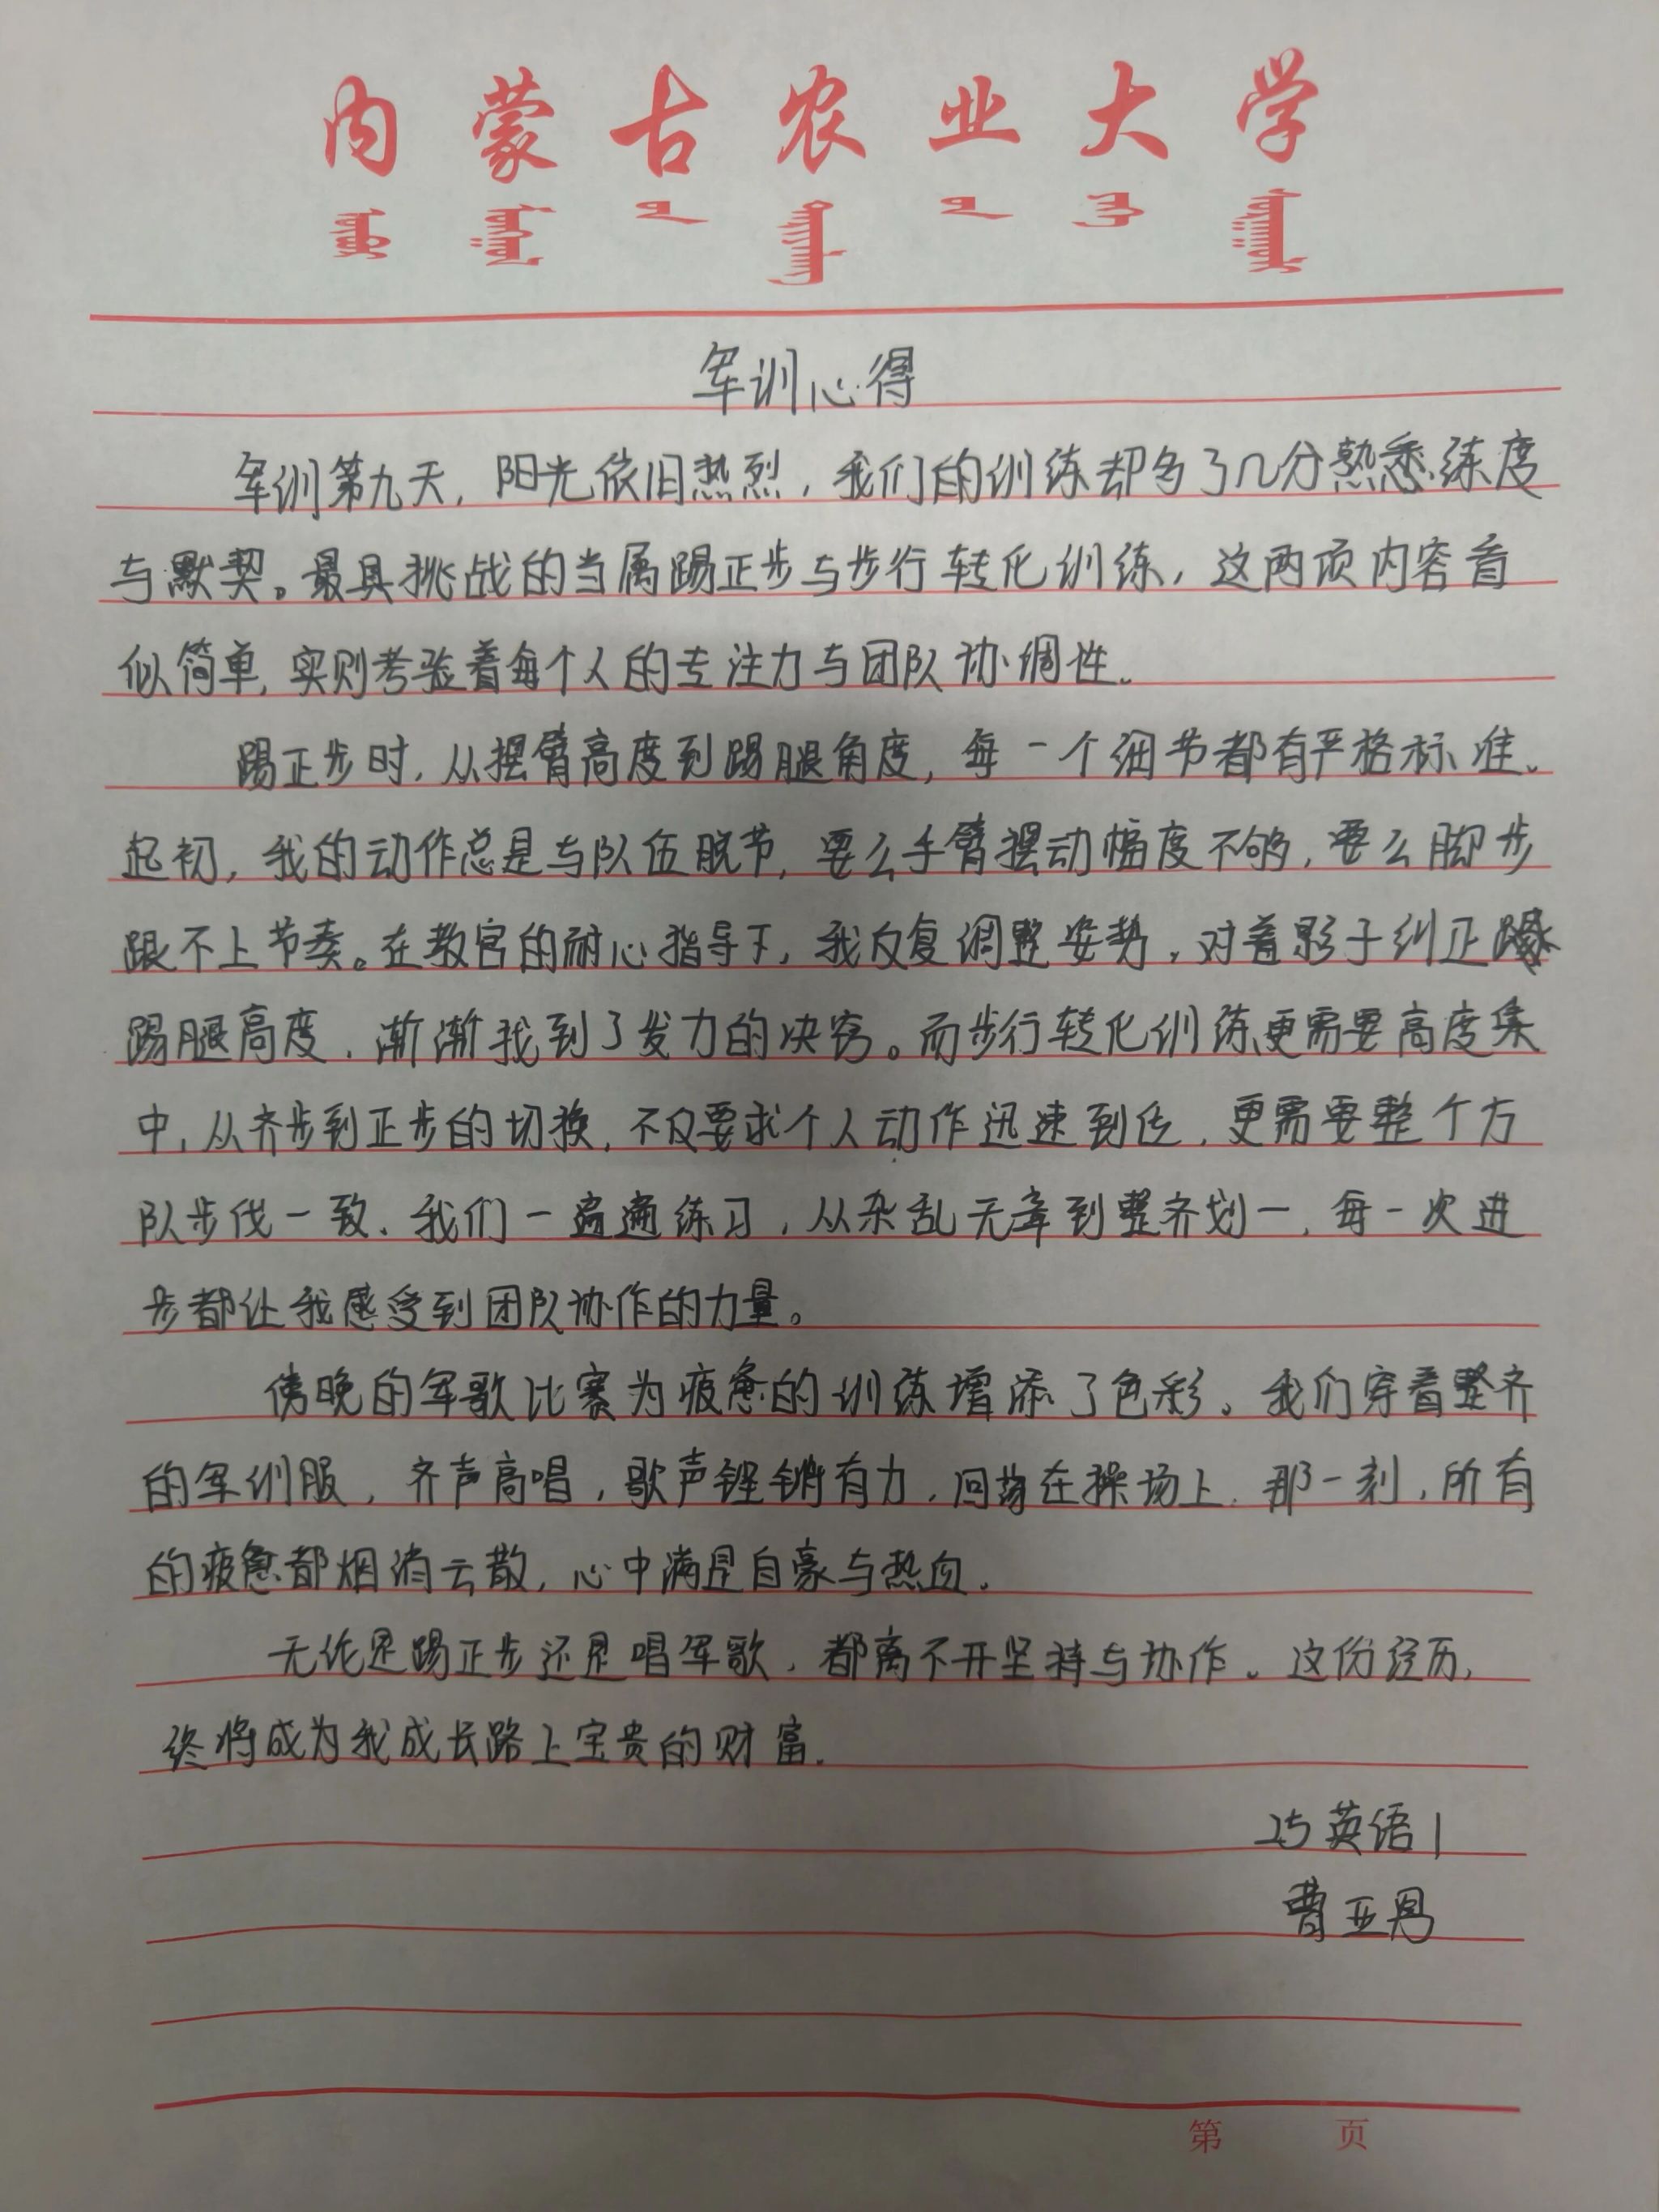 内蒙古农业大学
军训心得
军训第九天，阳光依旧热烈，我们的训练却多了几分熟悉练度
与默契。最具挑战的当属踢正步与步行转化训练，这两项内容看
似简单，实则考验着每个人的专注力与团队协调性。
踢正步时，从摆臂高度到踢腿角度，每一个细节都有严格标准。
起初，我的动作总是与队伍脱节，要么手臂摆动幅度不够，要么脚步
跟不上节奏。在教官的耐心指导下，我反复调整姿势，对着影子纠正
踢腿高度，渐渐找到了发力的决窍。而步行转化训练更需要高度集
中，从齐步到正步的切换，不仅要求个人动作迅速到位，更需要整个方
队步伐一致。我们一遍遍练习，从杂乱无章到整齐划一，每一次进
步都让我感受到团队协作的力量。
傍晚的军歌比赛为疲惫的训练增添了色彩。我们穿着整齐
的军训服，齐声高唱，歌声铿锵有力，回荡在操场上。那一刻，所有
的疲惫都烟消云散，心中满是自豪与热血。
无论是踢正步还是唱军歌，都离不开坚持与协作。这份经历，
终将成为我成长路上宝贵的财富。
25英语1
曹亚丹
第 页